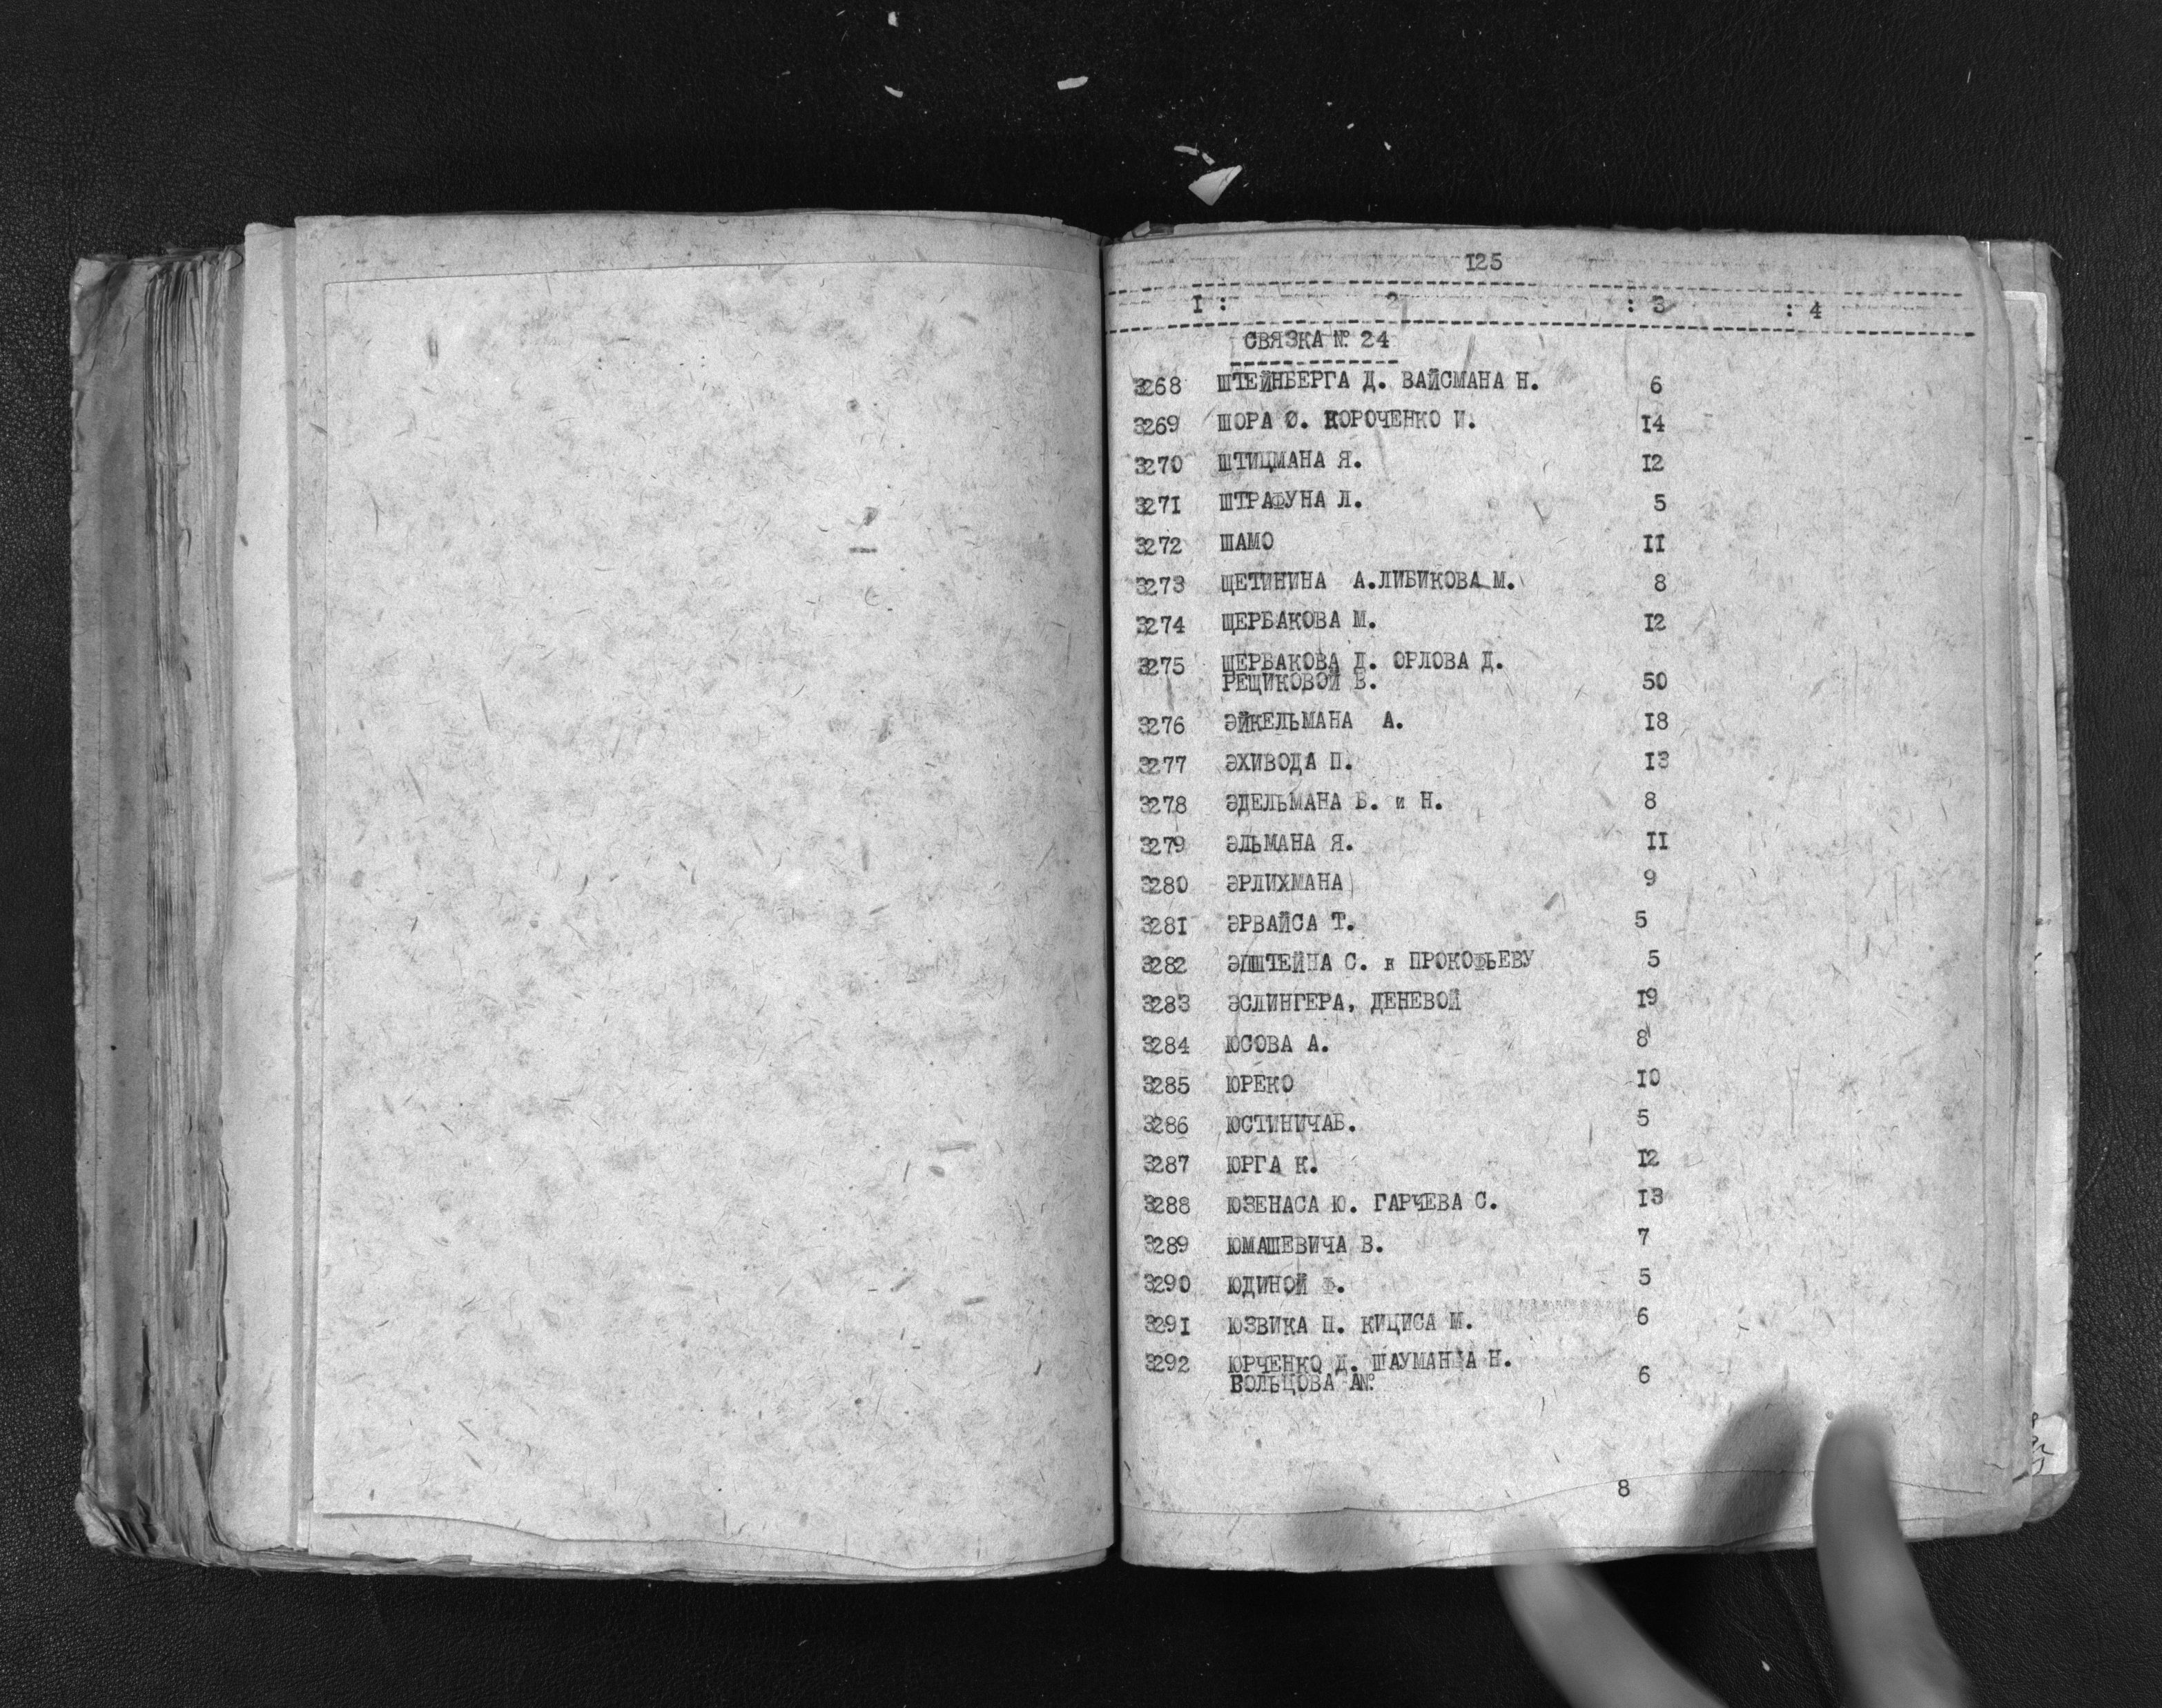 125
I : 2 : 3 : 4
СВЯЗКА № 24
3268 ШТЕЙНБЕРГА Д. ВАЙСМАНА Н. 6
3269 ШОРА О. КОРОЧЕНКО И. I4
3270 ШТИЦМАНА Я. I2
3271 ШТРАФУНА Л. 5
3272 ШАМО II
3273 ЩЕТИНИНА А.ЛИБИКОВА М. 8
3274 ЩЕРБАКОВА М. I2
3275 ЩЕРБАКОВА Д. ОРЛОВА Д.
РЕЩИКОВОЙ В. 50
3276 ЭЙКЕЛЬМАНА А. I8
3277 ЭХИВОДА П. I3
3278 ЭДЕЛЬМАНА Б. и Н. 8
3279 ЭЛЬМАНА Я. II
3280 ЭРЛИХМАНА) 9
3281 ЭРВАЙСА Т. 5
3282 ЭПШТЕЙНА С. к ПРОКОФЬЕВУ 5
3283 ЭСЛИНГЕРА, ДЕНЕВОЙ I9
3284 ЮСОВА А. 8
3285 ЮРЕКО I0
3286 ЮСТИНИЧАБ. 5
3287 ЮРГА К. I2
3288 ЮЗЕНАСА Ю. ГАРЧЕВА С. I3
3289 ЮМАШЕВИЧА В. 7
3290 ЮДИНОЙ Ф. 5
3291 ЮЗВИКА П. КИЦИСА М. 6
3292 ЮРЧЕНКО Д. Н.
ВОЛЬЦОВА А№ 6
8